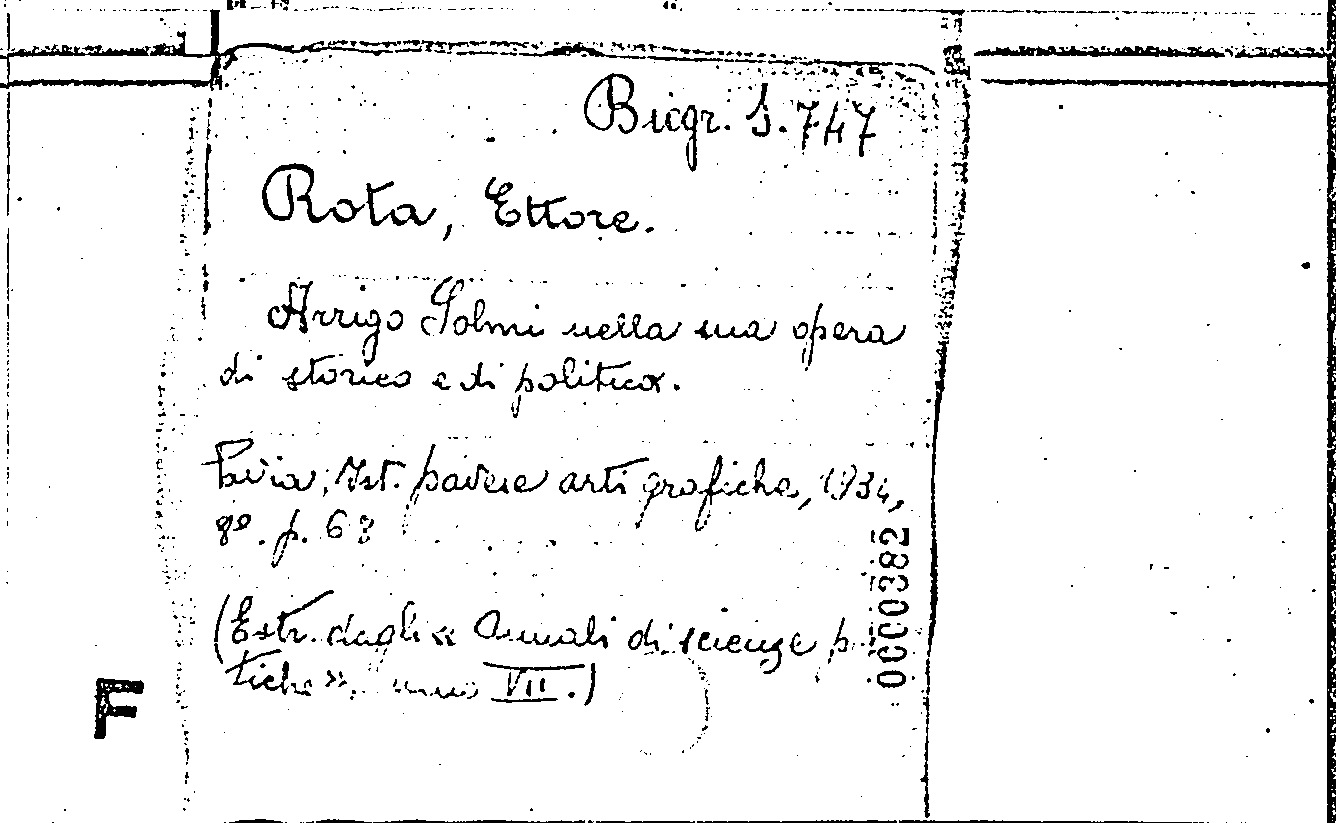 Biogr. S. 747
Rota, Ettore.
Arrigo Solmi nella sua opera
di storico e di politico.
Pavia, Ist. pavese arti grafiche, 1934,
8º. p. 63
(Estr. dagli « Annali di scienze
tiche», anno VII.)
0000382
F